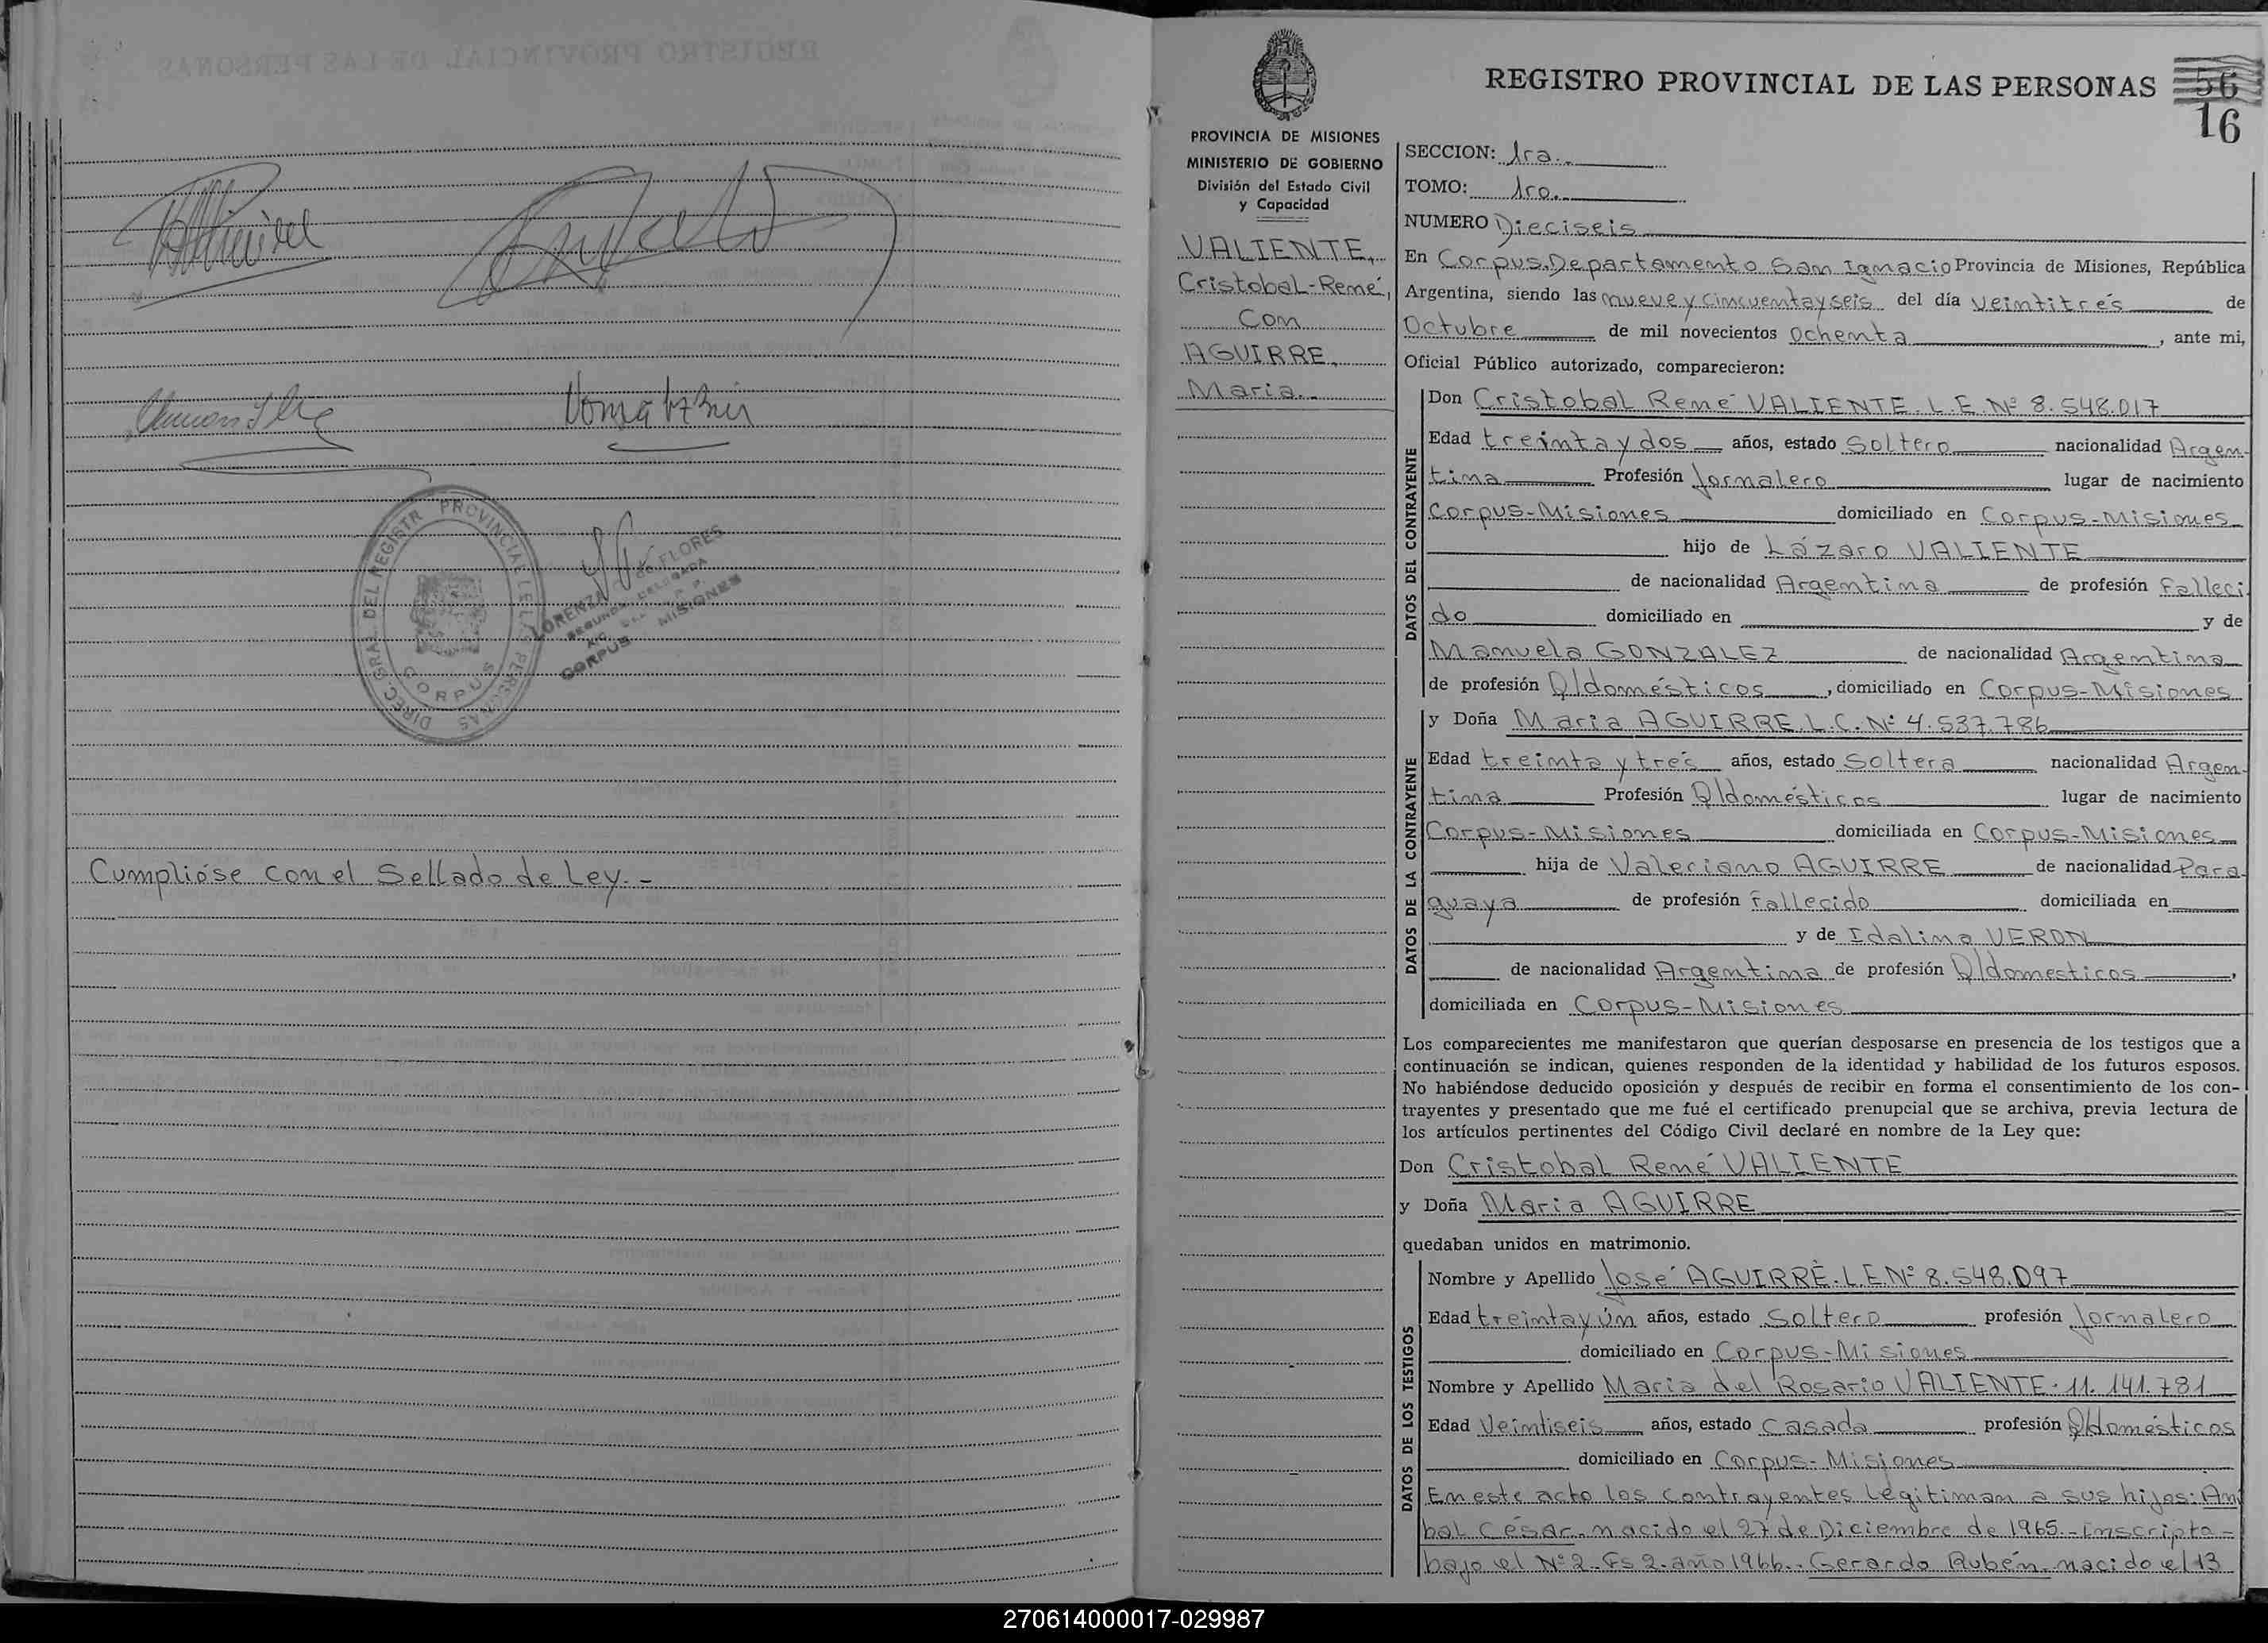 Cumplióse con el Sellado de Ley.-
DIREC. GRAL. DEL REGISTR PROVINCIAL PERSONAS
CORPUS
LORENZA de FLORES
SEGUNDA DELEGADA
CORPUS MISIONES
REGISTRO PROVINCIAL DE LAS PERSONAS
56
16
PROVINCIA DE MISIONES
MINISTERIO DE GOBIERNO
División del Estado Civil
y Capacidad
VALIENTE,
Cristobal-René,
Con
AGUIRRE,
Maria.-
SECCION: 1ra.
TOMO: 1ro.
NUMERO Dieciseis
En Corpus, Departamento San Ignacio Provincia de Misiones, República
Argentina, siendo las nueve y cincuenta y seis del día veintitrés de
Octubre de mil novecientos ochenta, ante mi,
Oficial Público autorizado, comparecieron:
DATOS DEL CONTRAYENTE
Don Cristobal René VALIENTE. L.E. Nº 8.548.017
Edad treinta y dos años, estado Soltero nacionalidad Argen-
tina Profesión Jornalero lugar de nacimiento
Corpus-Misiones domiciliado en Corpus-Misiones
hijo de Lázaro VALIENTE
de nacionalidad Argentina de profesión Falleci
do domiciliado en y de
Manuela GONZALEZ de nacionalidad Argentina
de profesión Q/domésticos, domiciliado en Corpus-Misiones
DATOS DE LA CONTRAYENTE
y Doña Maria AGUIRRE. L.C. Nº 4.537.786
Edad treinta y trés años, estado Soltera nacionalidad Argen-
tina Profesión Q/domésticos lugar de nacimiento
Corpus-Misiones domiciliada en Corpus-Misiones
hija de Valeriano AGUIRRE de nacionalidad Para
guaya de profesión Fallecido domiciliada en
y de Idalina VERON
de nacionalidad Argentina de profesión Q/domesticos,
domiciliada en Corpus-Misiones
Los comparecientes me manifestaron que querían desposarse en presencia de los testigos que a
continuación se indican, quienes responden de la identidad y habilidad de los futuros esposos.
No habiéndose deducido oposición y después de recibir en forma el consentimiento de los con-
trayentes y presentado que me fué el certificado prenupcial que se archiva, previa lectura de
los artículos pertinentes del Código Civil declaré en nombre de la Ley que:
Don Cristobal René VALIENTE
y Doña Maria AGUIRRE
quedaban unidos en matrimonio.
DATOS DE LOS TESTIGOS
Nombre y Apellido José AGUIRRE. L.E Nº 8.548.097
Edad treinta y ún años, estado Soltero profesión Jornalero
domiciliado en Corpus-Misiones
Nombre y Apellido Maria del Rosario VALIENTE. 11.141.781
Edad Veintiseis años, estado Casada profesión Q/domésticos
domiciliado en Corpus-Misiones
En este acto los contrayentes legitiman a sus hijos: Aní
bal César. nacido el 27 de Diciembre de 1965.- Inscripto-
bajo el Nº 2. Fs 2. año 1966.- Gerardo Rubén. nacido el 13
270614000017-029987